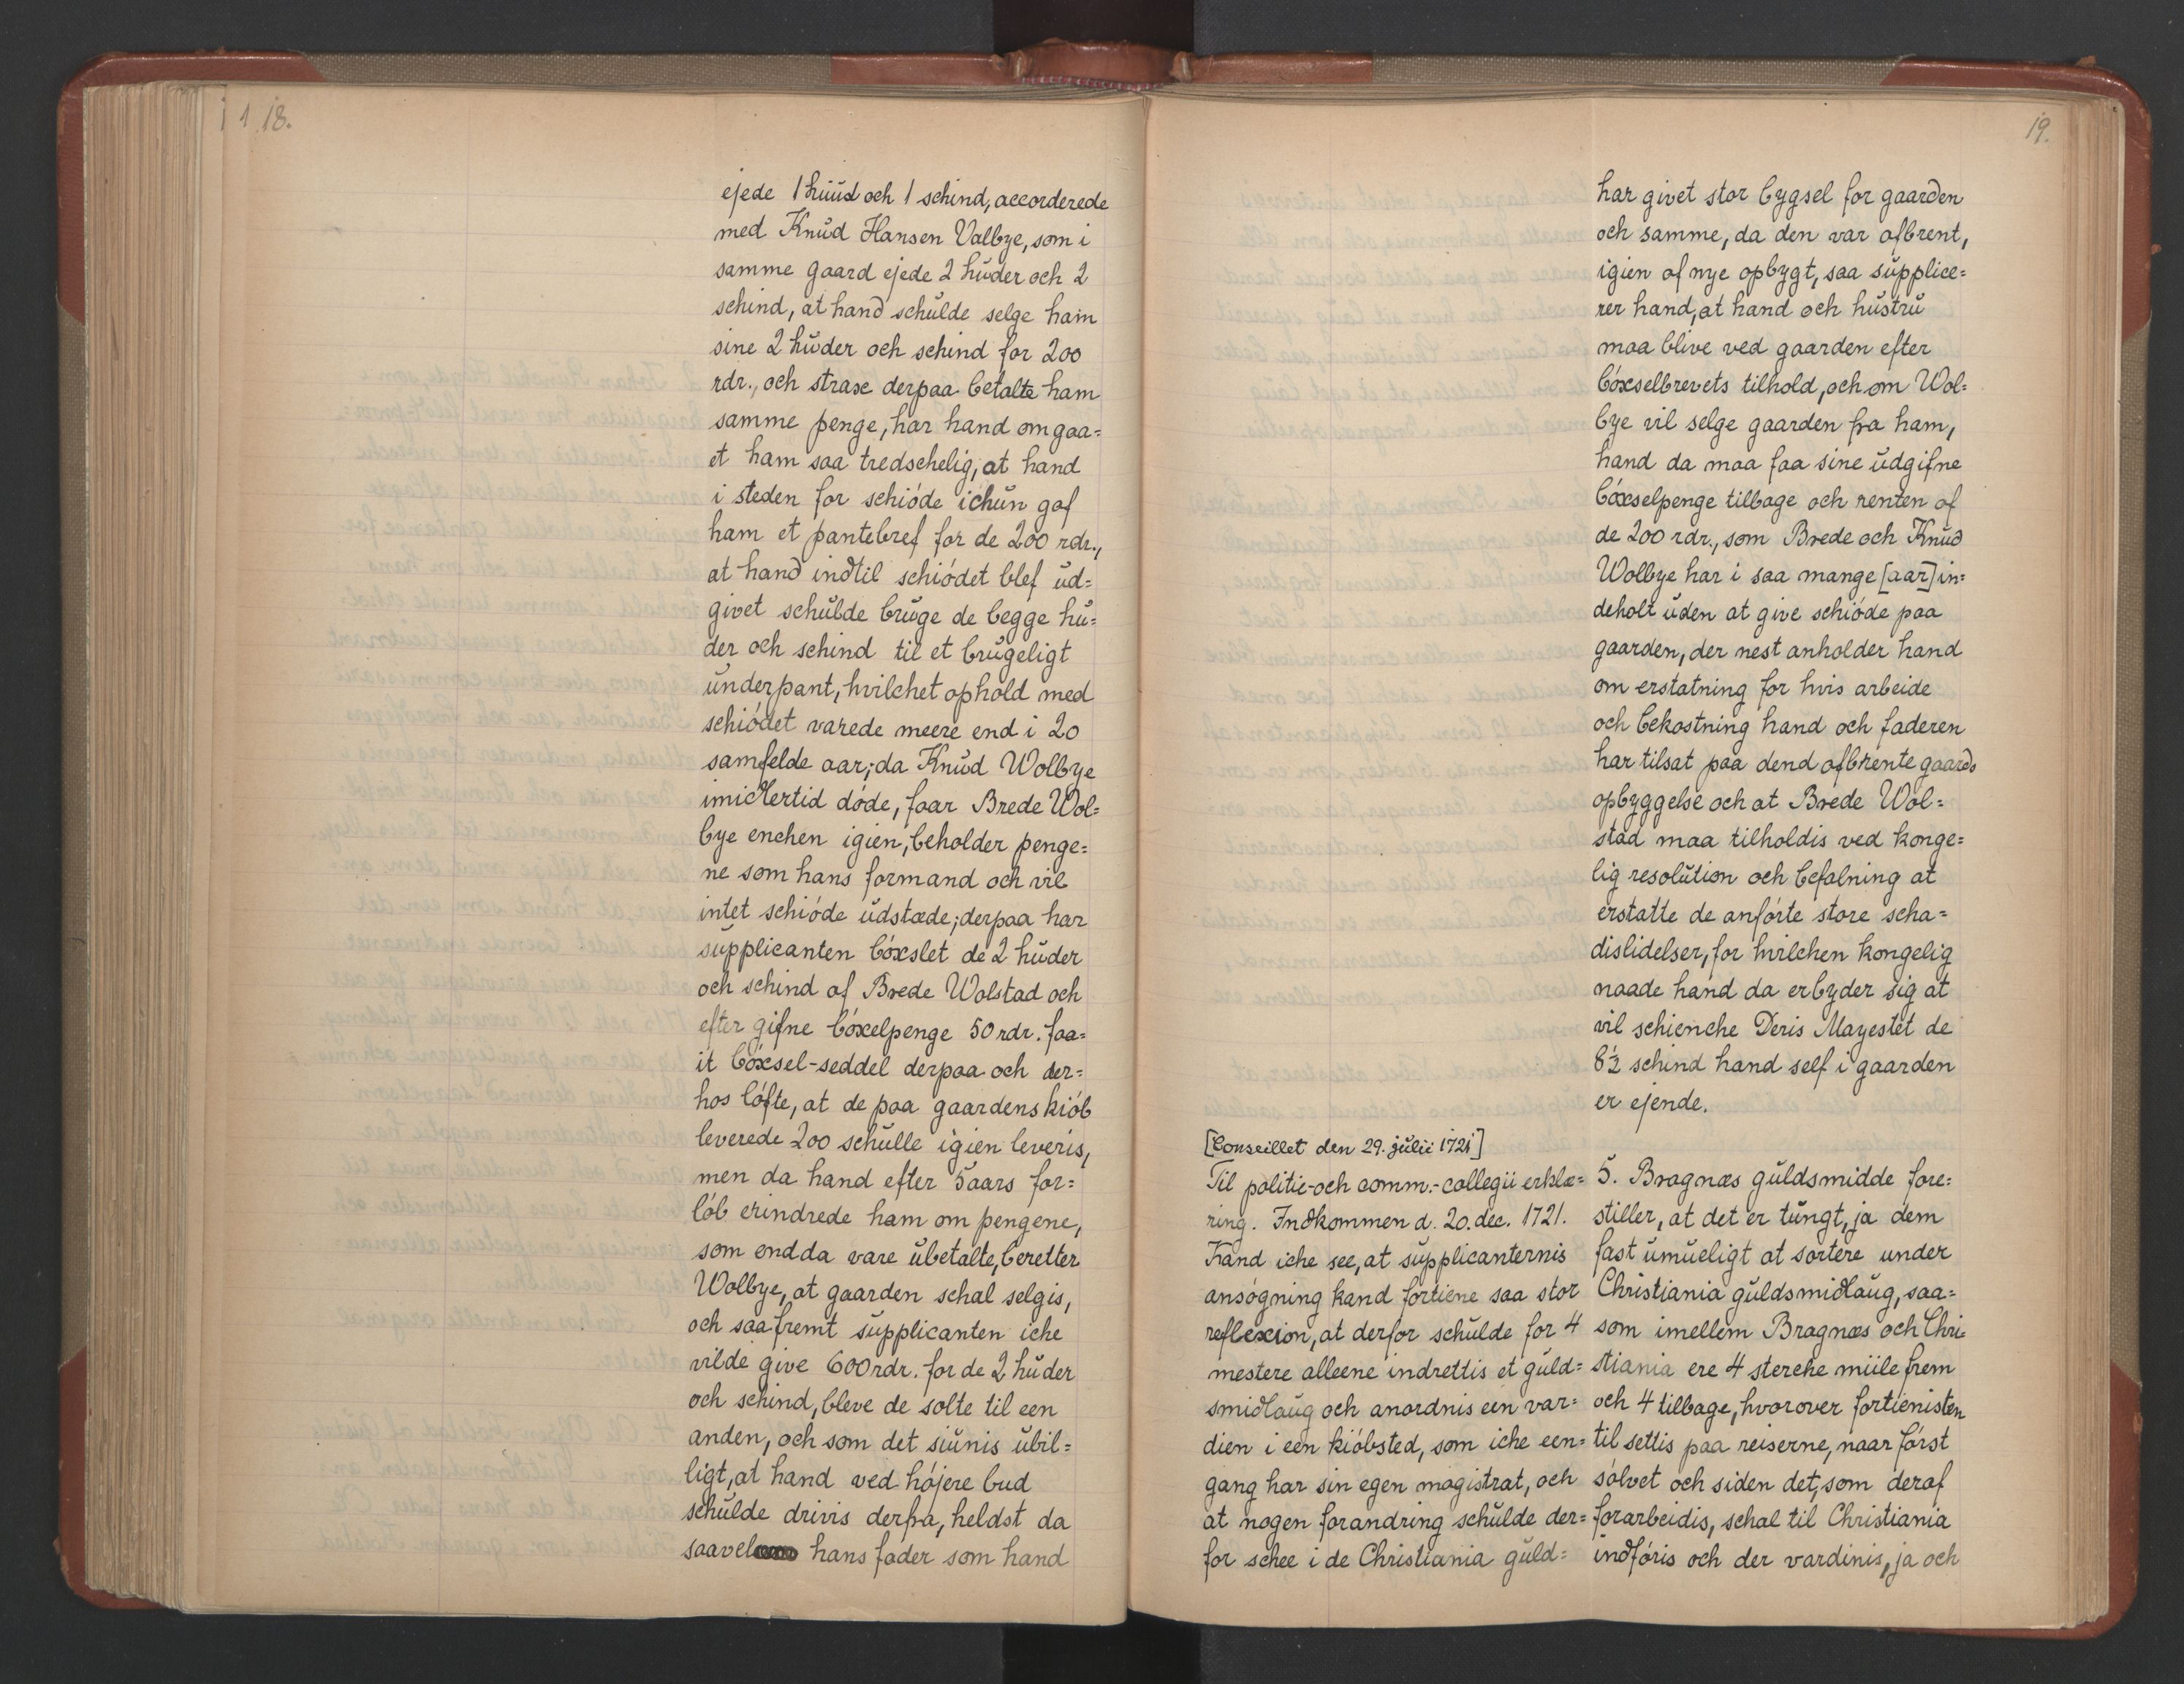 18.
ejede 1 huud och 1 schind, accorderede
med Knud Hansen Valbye, som i
samme gaard ejede 2 huder och 2
schind, at hand schulde selge ham
sine 2 huder och schind for 200
rdr., och strax derpaa betalte ham
samme penge, har hand omgaa=
et ham saa tredschelig, at hand
i steden for schiöde ichun gaf
ham et pantebref for de 200 rdr.,
at hand indtil schiödet blef ud=
givet schulde bruge de begge hu=
der och schind til et brugeligt
underpant, hvilchet ophold med
schiödet varede meere end i 20
samfelde aar; da Knud Wolbye
imidlertid döde, faar Brede Wol=
bye enchen igien, beholder penge=
ne som hans formand och vil
intet schiöde udstæde; derpaa har
supplicanten böxslet de 2 huder
och schind af Brede Wolstad och
efter gifne böxelpenge 50 rdr. faa=
it böxsel-seddel derpaa och der=
hos löfte, at de paa gaardens kiöb
leverede 200 schulle igien leveris,
men da hand efter 5 aars for=
löb erindrede ham om pengene,
som endda vare ubetalte, beretter
Wolbye, at gaarden schal selgis,
och saafremt supplicanten iche
vilde give 600 rdr. for de 2 huder
och schind, bleve de solte til een
anden, och som det siunis ubil=
ligt, at hand ved höjere bud
schulde drivis derfra, heldst da
saavel hans fader som hand
19.
har givet stor bygsel for gaarden
och samme, da den var afbrent,
igien af nye opbygt, saa supplice=
rer hand, at hand och hustru
maa blive ved gaarden efter
böxselbrevets tilhold, och om Wol=
bye vil selge gaarden fra ham,
hand da maa faa sine udgifne
böxselpenge tilbage och renten af
de 200 rdr., som Brede och Knud
Wolbye har i saa mange [aar] in=
deholt uden at give schiöde paa
gaarden, der nest anholder hand
om erstatning for hvis arbeide
och bekostning hand och faderen
har tilsat paa dend afbrente gaards
opbyggelse och at Brede Wol=
stad maa tilholdis ved konge=
lig resolution och befalning at
erstatte de anförte store scha=
dislidelser, for hvilchen kongelig
naade hand da erbyder sig at
vil schienche Deris Mayestet de
8½ schind hand self i gaarden
er ejende.
[Conseillet den 29. julii 1721]
Til politie- och comm.-collegii erklæ=
ring. Indkommen d. 20. dec. 1721.
Kand iche see, at supplicanternis
ansögning kand fortiene saa stor
reflexion, at derfor schulde for 4
mestere alleene indrettis et guld=
smidlaug och anordnis een var=
dien i een kiöbsted, som iche een=
gang har sin egen magistrat, och
at nogen forandring schulde der=
for schee i de Christiania guld=
5. Bragnæs guldsmidde fore=
stiller, at det er tungt, ja dem
fast umueligt at sortere under
Christiania guldsmidlaug, saa=
som imellem Bragnæs och Chri=
stiania ere 4 sterche miile frem
och 4 tilbage, hvorover fortienisten
til settis paa reiserne, naar först
sölvet och siden det, som deraf
forarbeidis, schal til Christiania
indföris och der vardinis, ja och